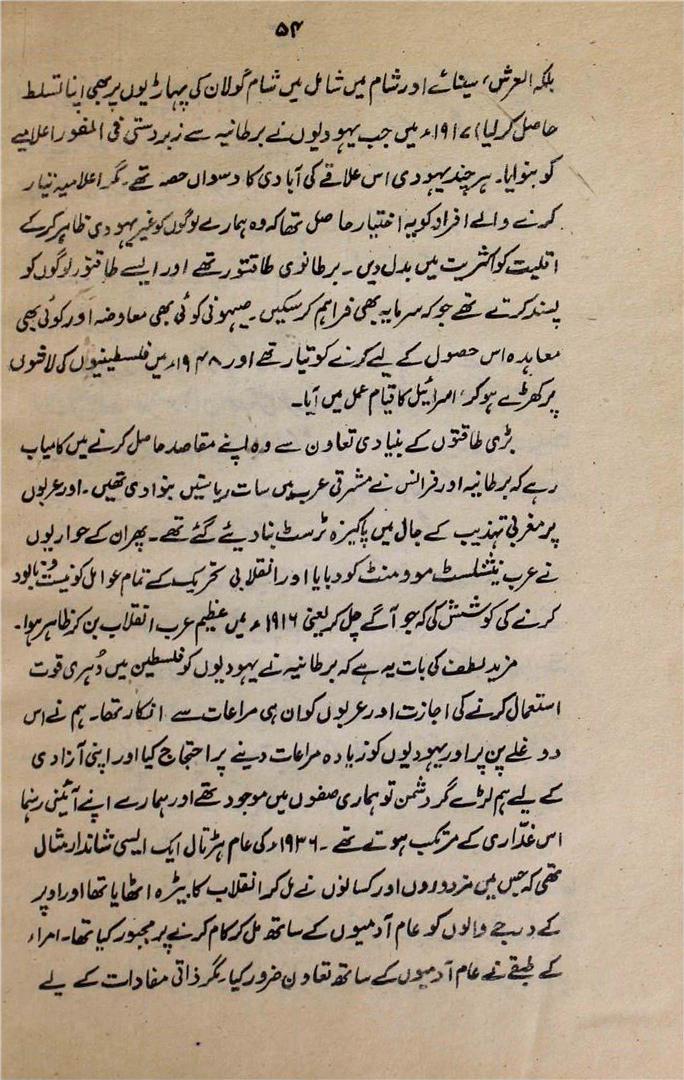 ۵۴
بلکہ العرش، سینائے اور شام میں شامل میں شام گولان کی پہاڑیوں پر بھی اپنا تسلط
حاصل کر لیا) ۱۹۱۷ء میں جب یہودیوں نے برطانیہ سے زبردستی فی الفور اعلامیے
کو بنوایا۔ ہر چند یہودی اس علاقے کی آبادی کا دسواں حصہ تھے۔ مگر اعلامیہ تیار
کرنے والے افراد کو یہ اختیار حاصل تھا کہ وہ ہمارے لوگوں کو غیر یہودی ظاہر کر کے
اقلیت کو اکثریت میں بدل دیں۔ برطانوی طاقتور تھے اور ایسے طاقتور لوگوں کو
پسند کرتے تھے جو کہ سرمایہ بھی فراہم کر سکیں۔ صیہونی کوئی بھی معاوضہ اور کوئی بھی
معاہدہ اس حصول کے لیے کرنے کو تیار تھے اور ۱۹۴۸ء میں فلسطینیوں کی لاشوں
پر کھڑے ہو کر، اسرائیل کا قیام عمل میں آیا۔
بڑی طاقتوں کے بنیادی تعاون سے وہ اپنے مقاصد حاصل کرنے میں کامیاب
رہے کہ برطانیہ اور فرانس نے مشرقی عرب میں سات ریاستیں بنوا دی تھیں۔ اور عربوں
پر مغربی تہذیب کے جال میں پاکیزہ ٹرسٹ بنا دیئے گئے تھے۔ پھر ان کے حواریوں
نے عرب نیشنلسٹ موومنٹ کو دبایا اور انقلابی تحریک کے تمام عوامل کو نیست و نابود
کرنے کی کوشش کی کہ جو آگے چل کر یعنی ۱۹۱۶ء میں عظیم عرب انقلاب بن کر ظاہر ہوا۔
مزید لطف کی بات یہ ہے کہ برطانیہ نے یہودیوں کو فلسطین میں دُہری قوت
استعمال کرنے کی اجازت اور عربوں کو ان ہی مراعات سے انکار تھا۔ ہم نے اس
دوغلے پن پر اور یہودیوں کو زیادہ مراعات دینے پر احتجاج کیا اور اپنی آزادی
کے لیے ہم لڑے مگر دشمن تو ہماری صفوں میں موجود تھے اور ہمارے اپنے آئینی رہنما
اس غدّاری کے مرتکب ہوتے تھے۔ ۱۹۳۶ء کی عام ہڑتال ایک ایسی شاندار مثال
تھی کہ جس میں مزدوروں اور کسانوں نے مل کر انقلاب کا بیڑہ اٹھایا تھا اور اوپر
کے درجے والوں کو عام آدمیوں کے ساتھ مل کر کام کرنے پر مجبور کیا تھا۔ امراء
کے طبقے نے عام آدمیوں کے ساتھ تعاون ضرور کیا۔ مگر ذاتی مفادات کے لیے